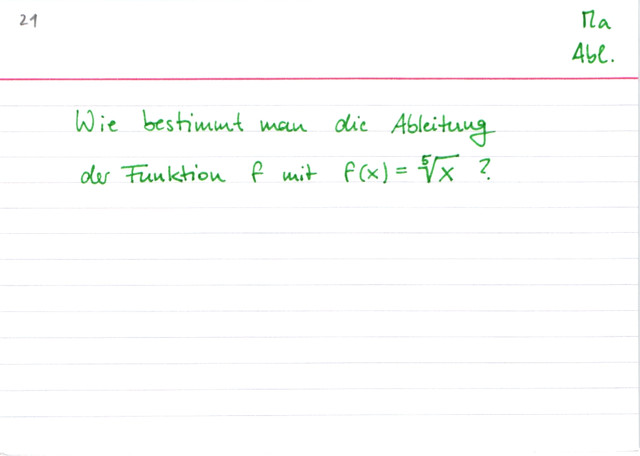 21
Ma
Abl.
Wie bestimmt man die Ableitung
der Funktion f mit f(x) = ⁵√x ?